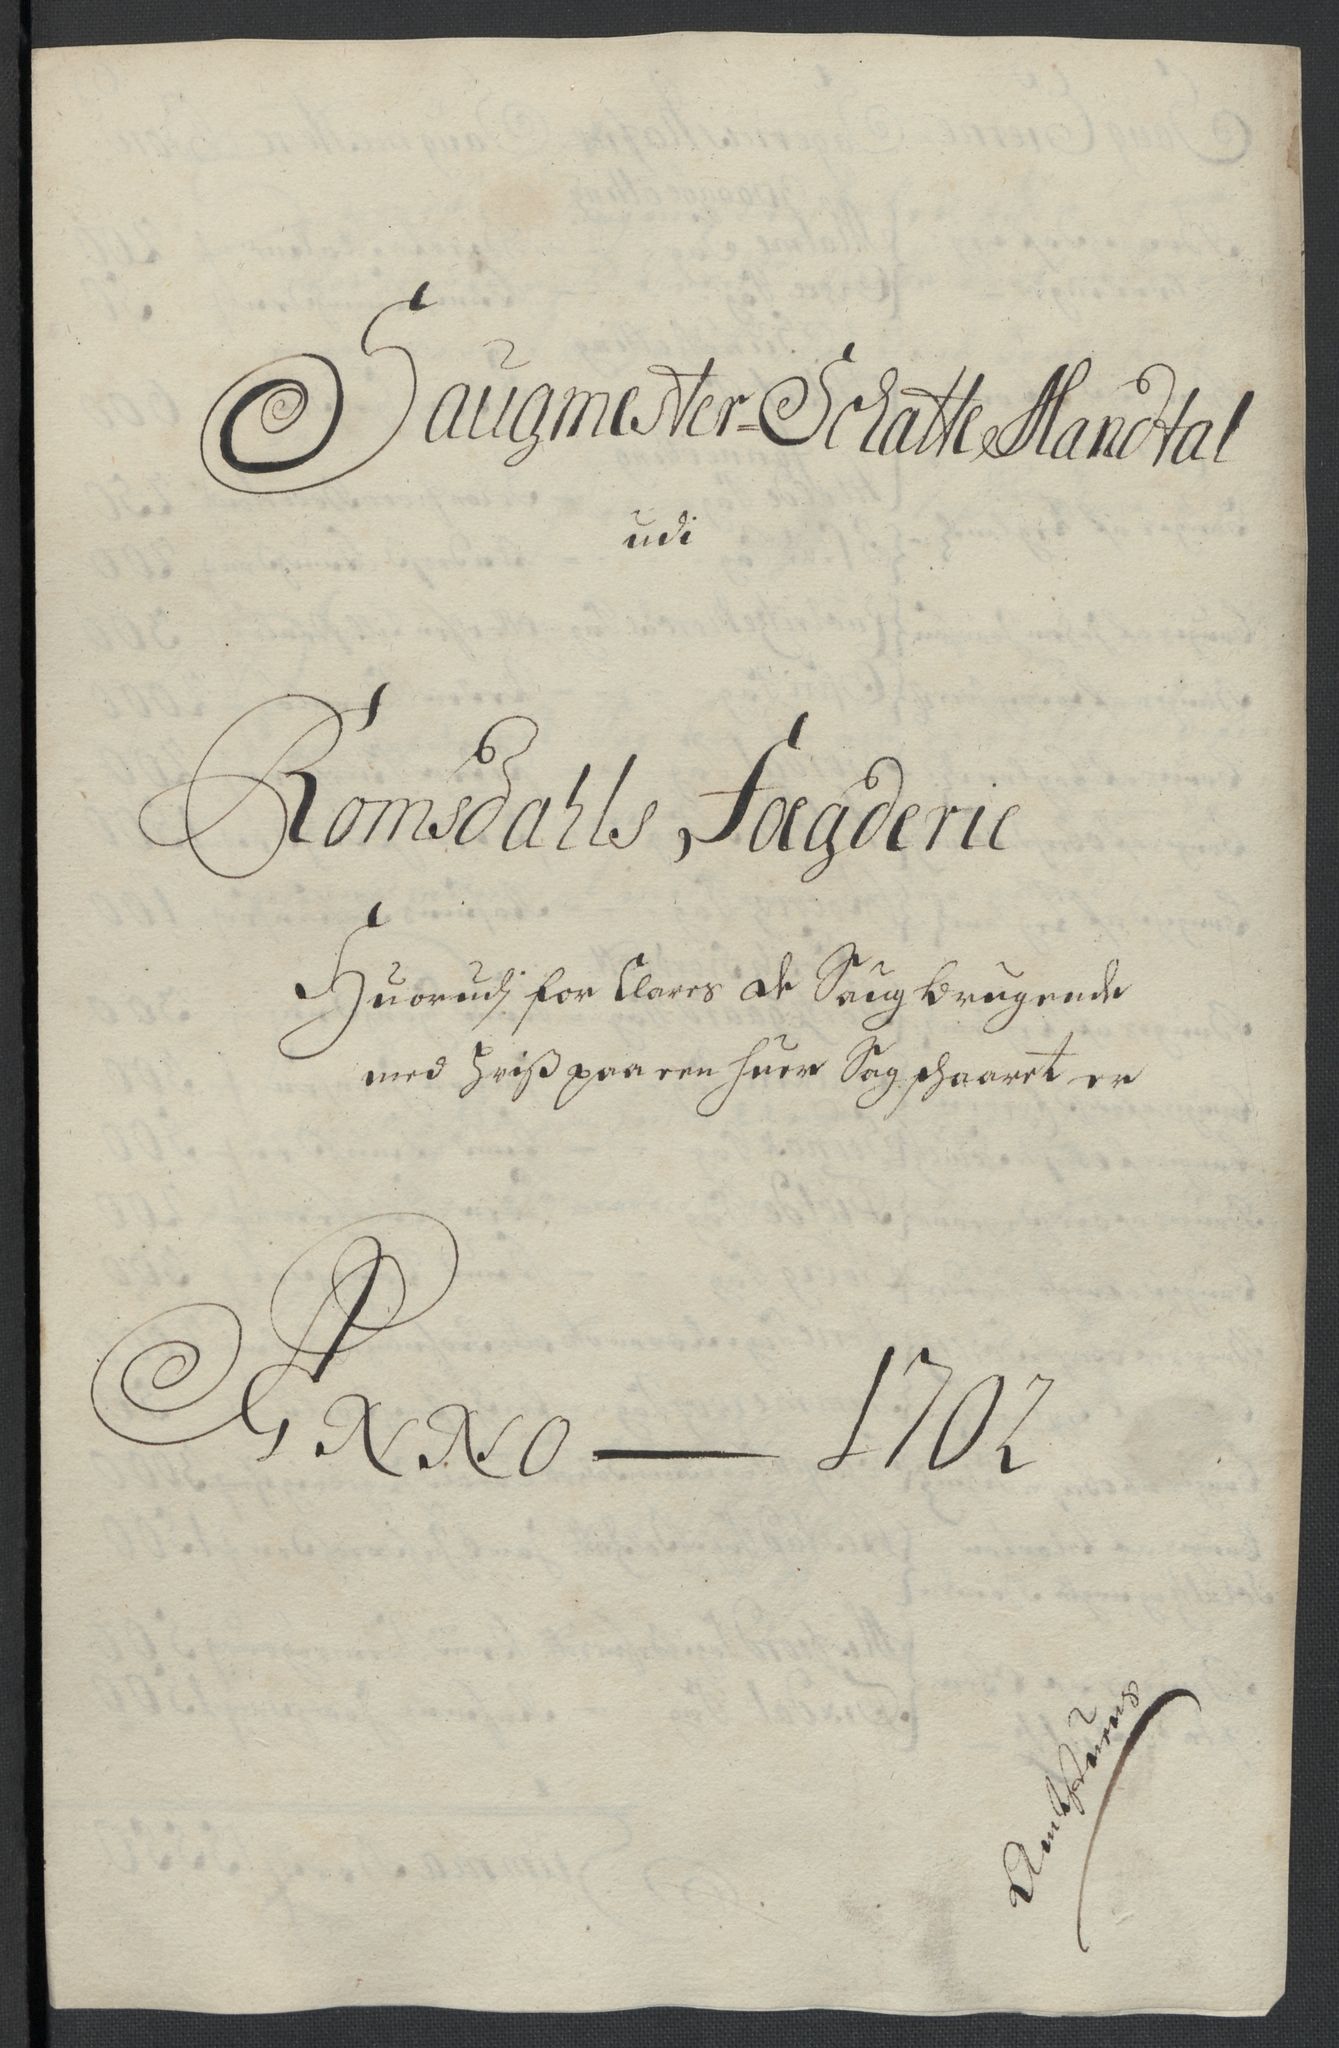 Saugmester-Schatte Mandtal
udi
Romsdahls Fægderie
Huorudj for Clares de Saug brugende
med hviß paa een huer Sag schaaret er
ANNO — 1702